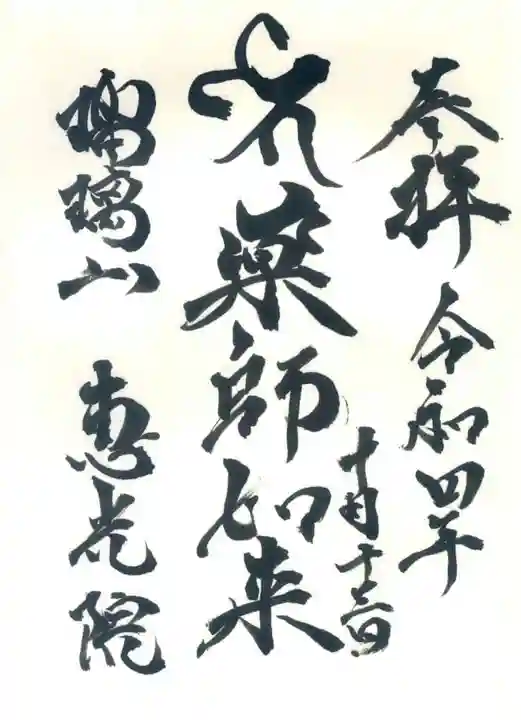 奉拝 令和四年
十月十三日
薬師如来
瑠璃山 恵光院